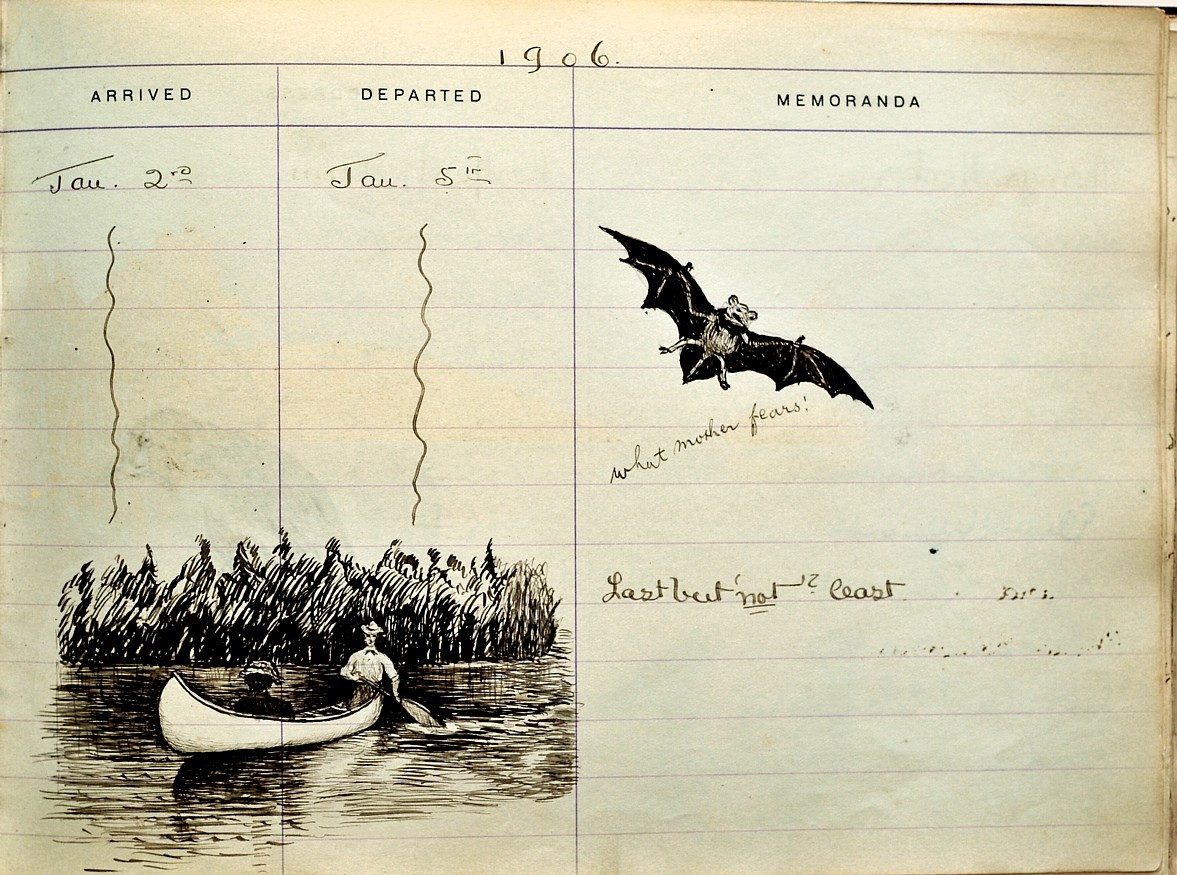 1906.
ARRIVED DEPARTED MEMORANDA
Jan. 2rd Jan. 5th
what mother fears!
Last but "not" least